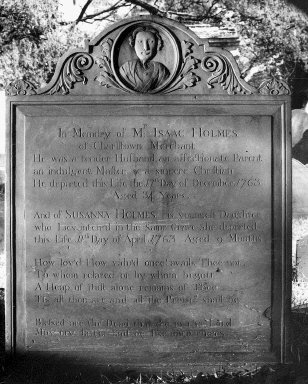 In Memory of Mr ISAAC HOLMES
of Charlstown Merchant.
He was a tender Husband an affectionate Parent
an indulgent Master & a sincere Christian
He departed this Life the 11th Day of December 1763
Aged 34 Years.
And of SUSANNA HOLMES his youngest Daughter
who Lies interr'd in the Same Grave She departed
this Life Day of April 1763 Aged 9 Months
How lov'd How valu'd once avails Thee not
To whom related or by whom begott
A Heap of dust alone remains of Thee
Tis all thou art and all the Proud shall be
Blessed are the Dead that die in the Lord